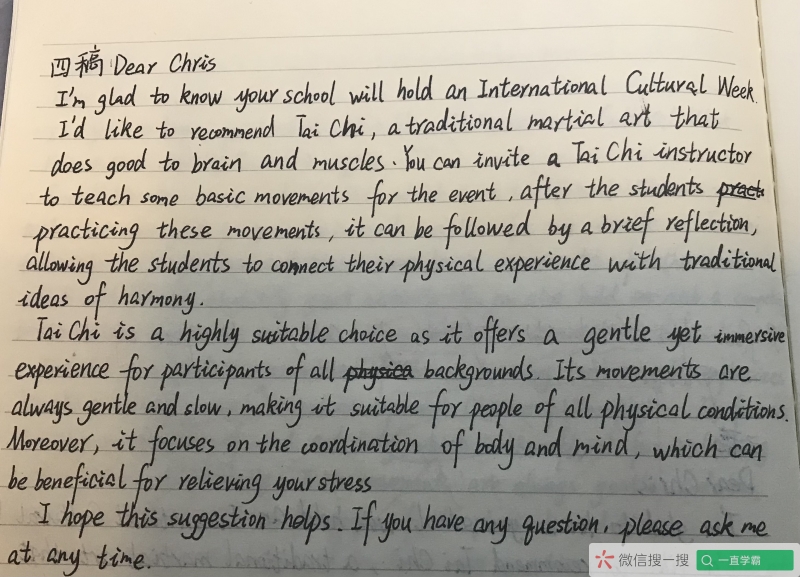 四稿 Dear Chris
I'm glad to know your school will hold an International Cultural Week.
I'd like to recommend Tai Chi, a traditional martial art that
does good to brain and muscles. You can invite a Tai Chi instructor
to teach some basic movements for the event, after the students pract
practicing these movements, it can be followed by a brief reflection,
allowing the students to connect their physical experience with traditional
ideas of harmony.
Tai Chi is a highly suitable choice as it offers a gentle yet immersive
experience for participants of all physica backgrounds. Its movements are
always gentle and slow, making it suitable for people of all physical conditions.
Moreover, it focuses on the coordination of body and mind, which can
be beneficial for relieving your stress
I hope this suggestion helps. If you have any question, please ask me
at any time.
微信搜一搜 一直学霸